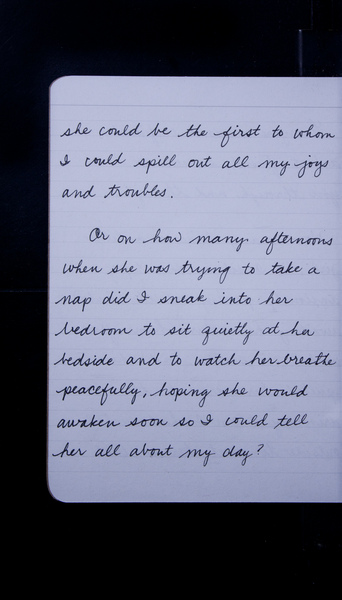 she could be the first to whom
I could spill out all my joys
and troubles.
Or on how many afternoons
when she was trying to take a
nap did I sneak into her
bedroom to sit quietly at her
bedside and to watch her breathe
peacefully, hoping she would
awaken soon so I could tell
her all about my day?